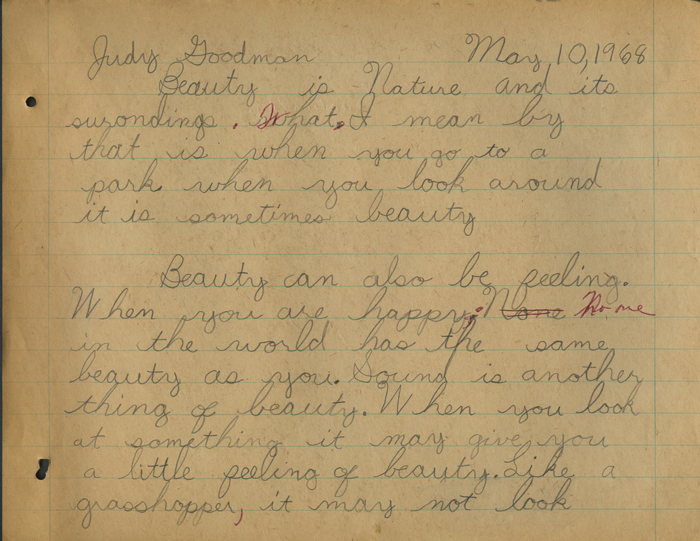 Judy Goodman May 10, 1968
Beauty is Nature and its
surondings. What, I mean by
that is when you go to a
park when you look around
it is sometimes beauty
Beauty can also be feeling.
When you are happy; None No one
in the world has the same
beauty as you. Sound is another
thing of beauty. When you look
at something it may give you
a little feeling of beauty. Like a
grasshopper, it may not look